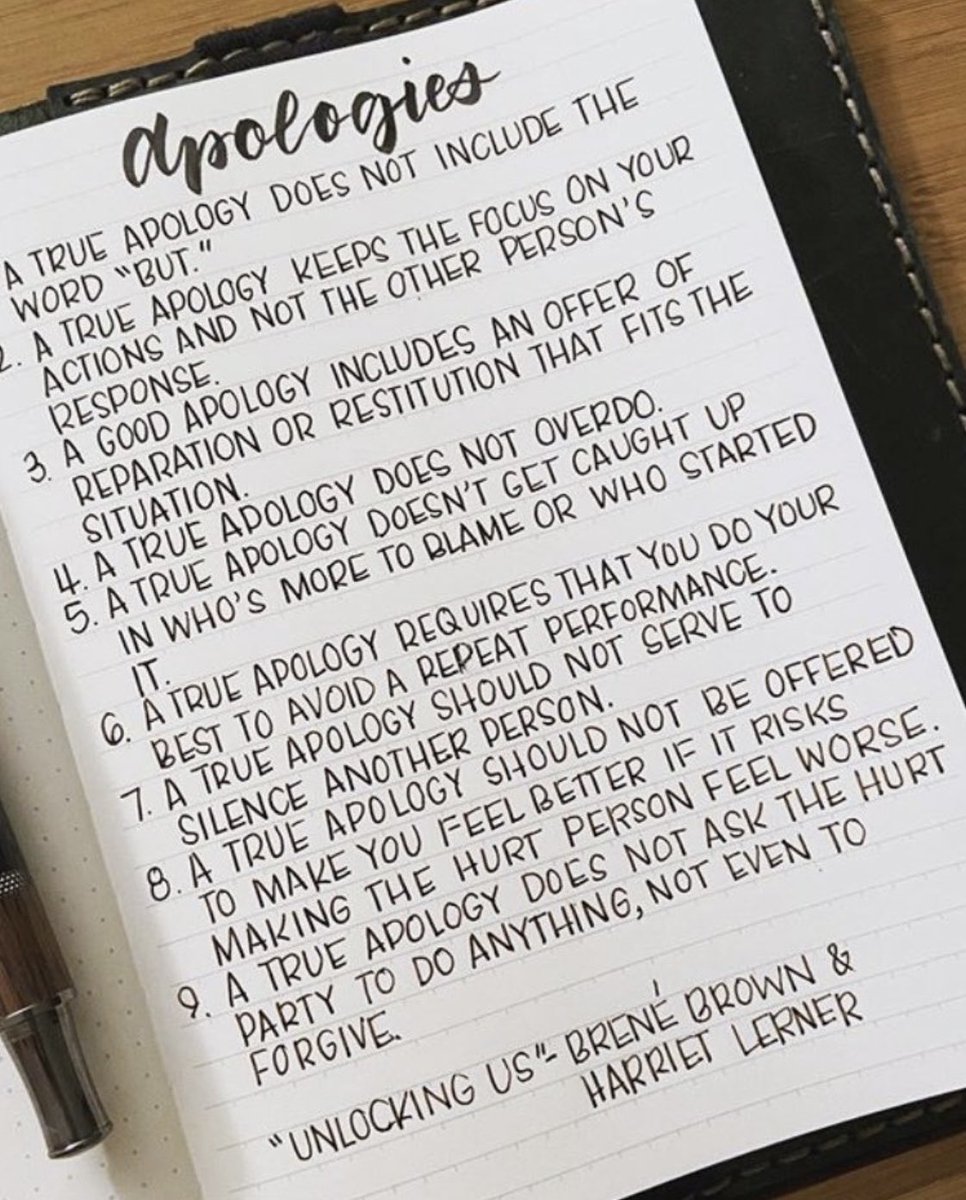 apologies
A TRUE APOLOGY DOES NOT INCLUDE THE
WORD "BUT."
2. A TRUE APOLOGY KEEPS THE FOCUS ON YOUR
ACTIONS AND NOT THE OTHER PERSON'S
RESPONSE.
3. A GOOD APOLOGY INCLUDES AN OFFER OF
REPARATION OR RESTITUTION THAT FITS THE
SITUATION.
4. A TRUE APOLOGY DOES NOT OVERDO.
5. A TRUE APOLOGY DOESN'T GET CAUGHT UP
IN WHO'S MORE TO BLAME OR WHO STARTED
IT.
6. A TRUE APOLOGY REQUIRES THAT YOU DO YOUR
BEST TO AVOID A REPEAT PERFORMANCE.
7. A TRUE APOLOGY SHOULD NOT SERVE TO
SILENCE ANOTHER PERSON.
8. A TRUE APOLOGY SHOULD NOT BE OFFERED
TO MAKE YOU FEEL BETTER IF IT RISKS
MAKING THE HURT PERSON FEEL WORSE.
9. A TRUE APOLOGY DOES NOT ASK THE HURT
PARTY TO DO ANYTHING, NOT EVEN TO
FORGIVE.
"UNLOCKING US"- BRENÉ BROWN &
HARRIET LERNER